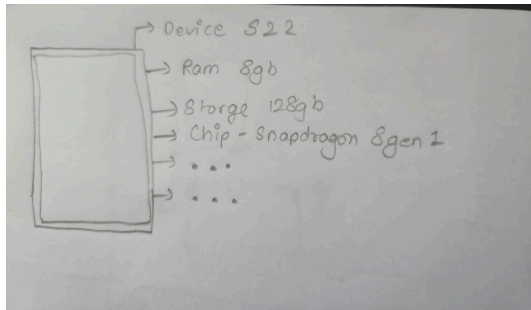 Device S22
Ram 8gb
Storge 128gb
Chip - Snapdragon 8gen 1
...
...